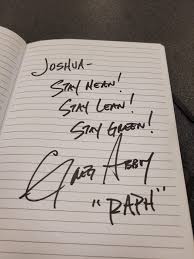 JOSHUA-
STAY MEAN!
STAY LEAN!
STAY GREEN!
GREG ABBY
"RAPH"